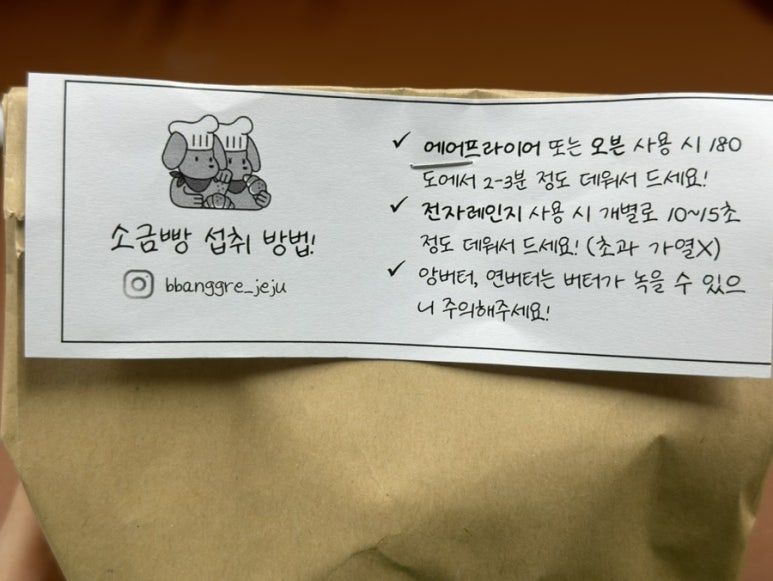 소금빵 섭취 방법!
bbanggre_jeju
✓ 에어프라이어 또는 오븐 사용 시 180
도에서 2-3분 정도 데워서 드세요!
✓ 전자레인지 사용 시 개별로 10~15초
정도 데워서 드세요! (초과 가열X)
✓ 앙버터, 연버터는 버터가 녹을 수 있으
니 주의해주세요!